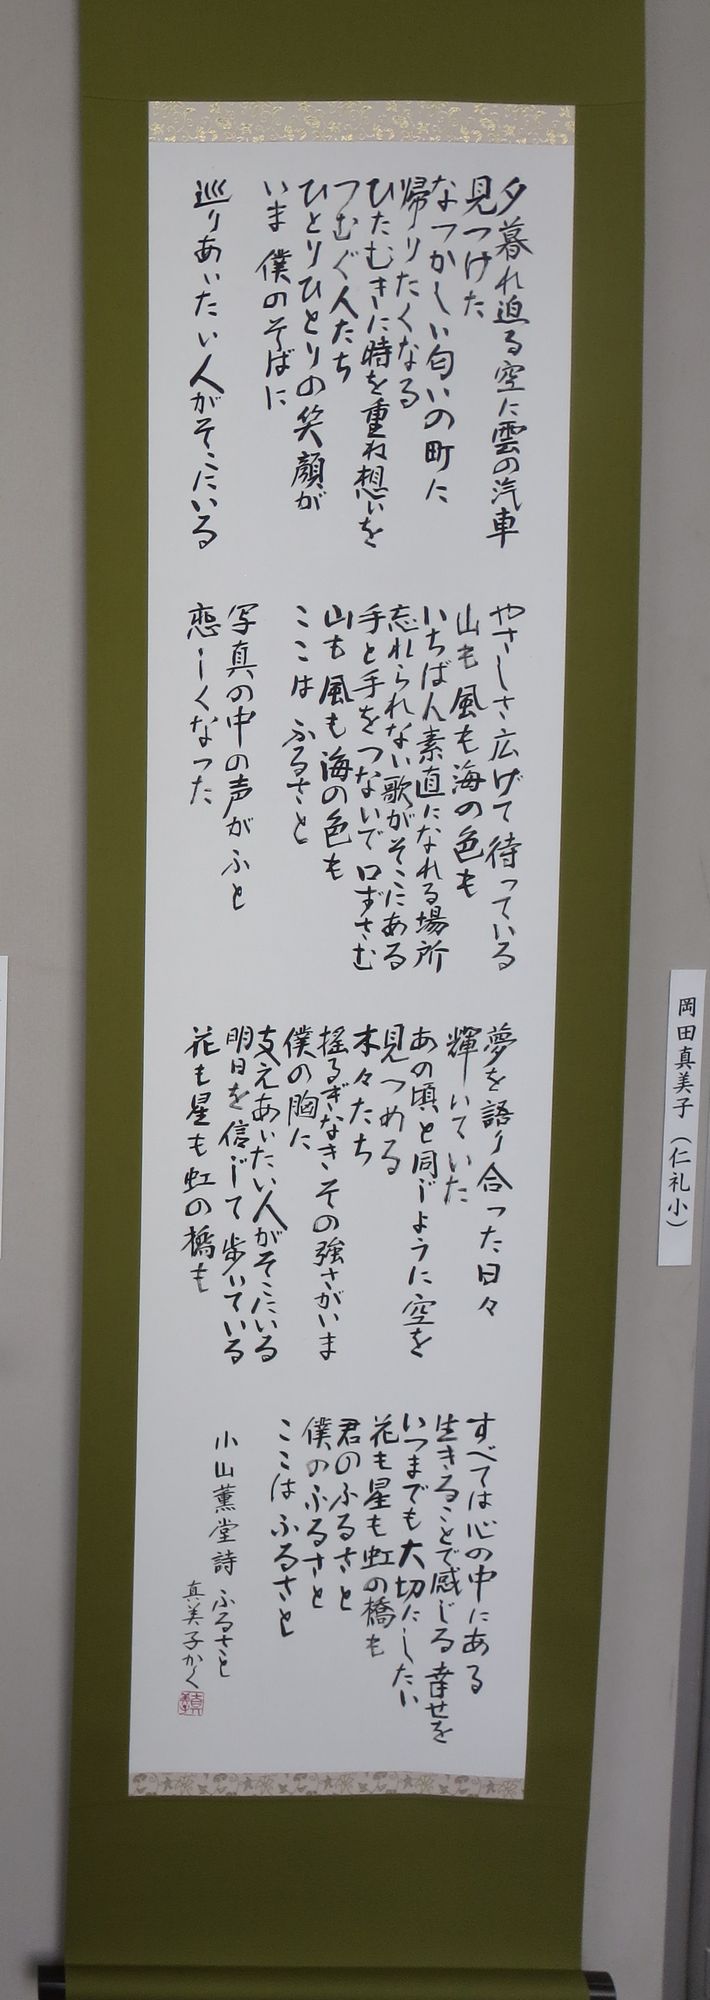 夕暮れ迫る空に雲の汽車
見つけた
なつかしい匂いの町に
帰りたくなる
ひたむきに時を重ね想いを
つむぐ人たち
ひとりひとりの笑顔が
いま 僕のそばに
巡りあいたい人がそこにいる
やさしさ広げて待っている
山も風も海の色も
いちばん素直になれる場所
忘れられない歌がそこにある
手と手をつないで口ずさむ
山も風も海の色も
ここは ふるさと
写真の中の声がふと
恋しくなった
夢を語り合った日々
輝いていた
あの頃と同じように空を
見つめる
木々たち
揺るぎなきその強さがいま
僕の胸に
支えあいたい人がそこにいる
明日を信じて歩いている
花も星も虹の橋も
すべては心の中にある
生きることで感じる幸せを
いつまでも大切にしたい
花も星も虹の橋も
君のふるさと
僕のふるさと
ここはふるさと
小山薫堂詩 ふるさと
真美子かく
岡田真美子(仁礼小)